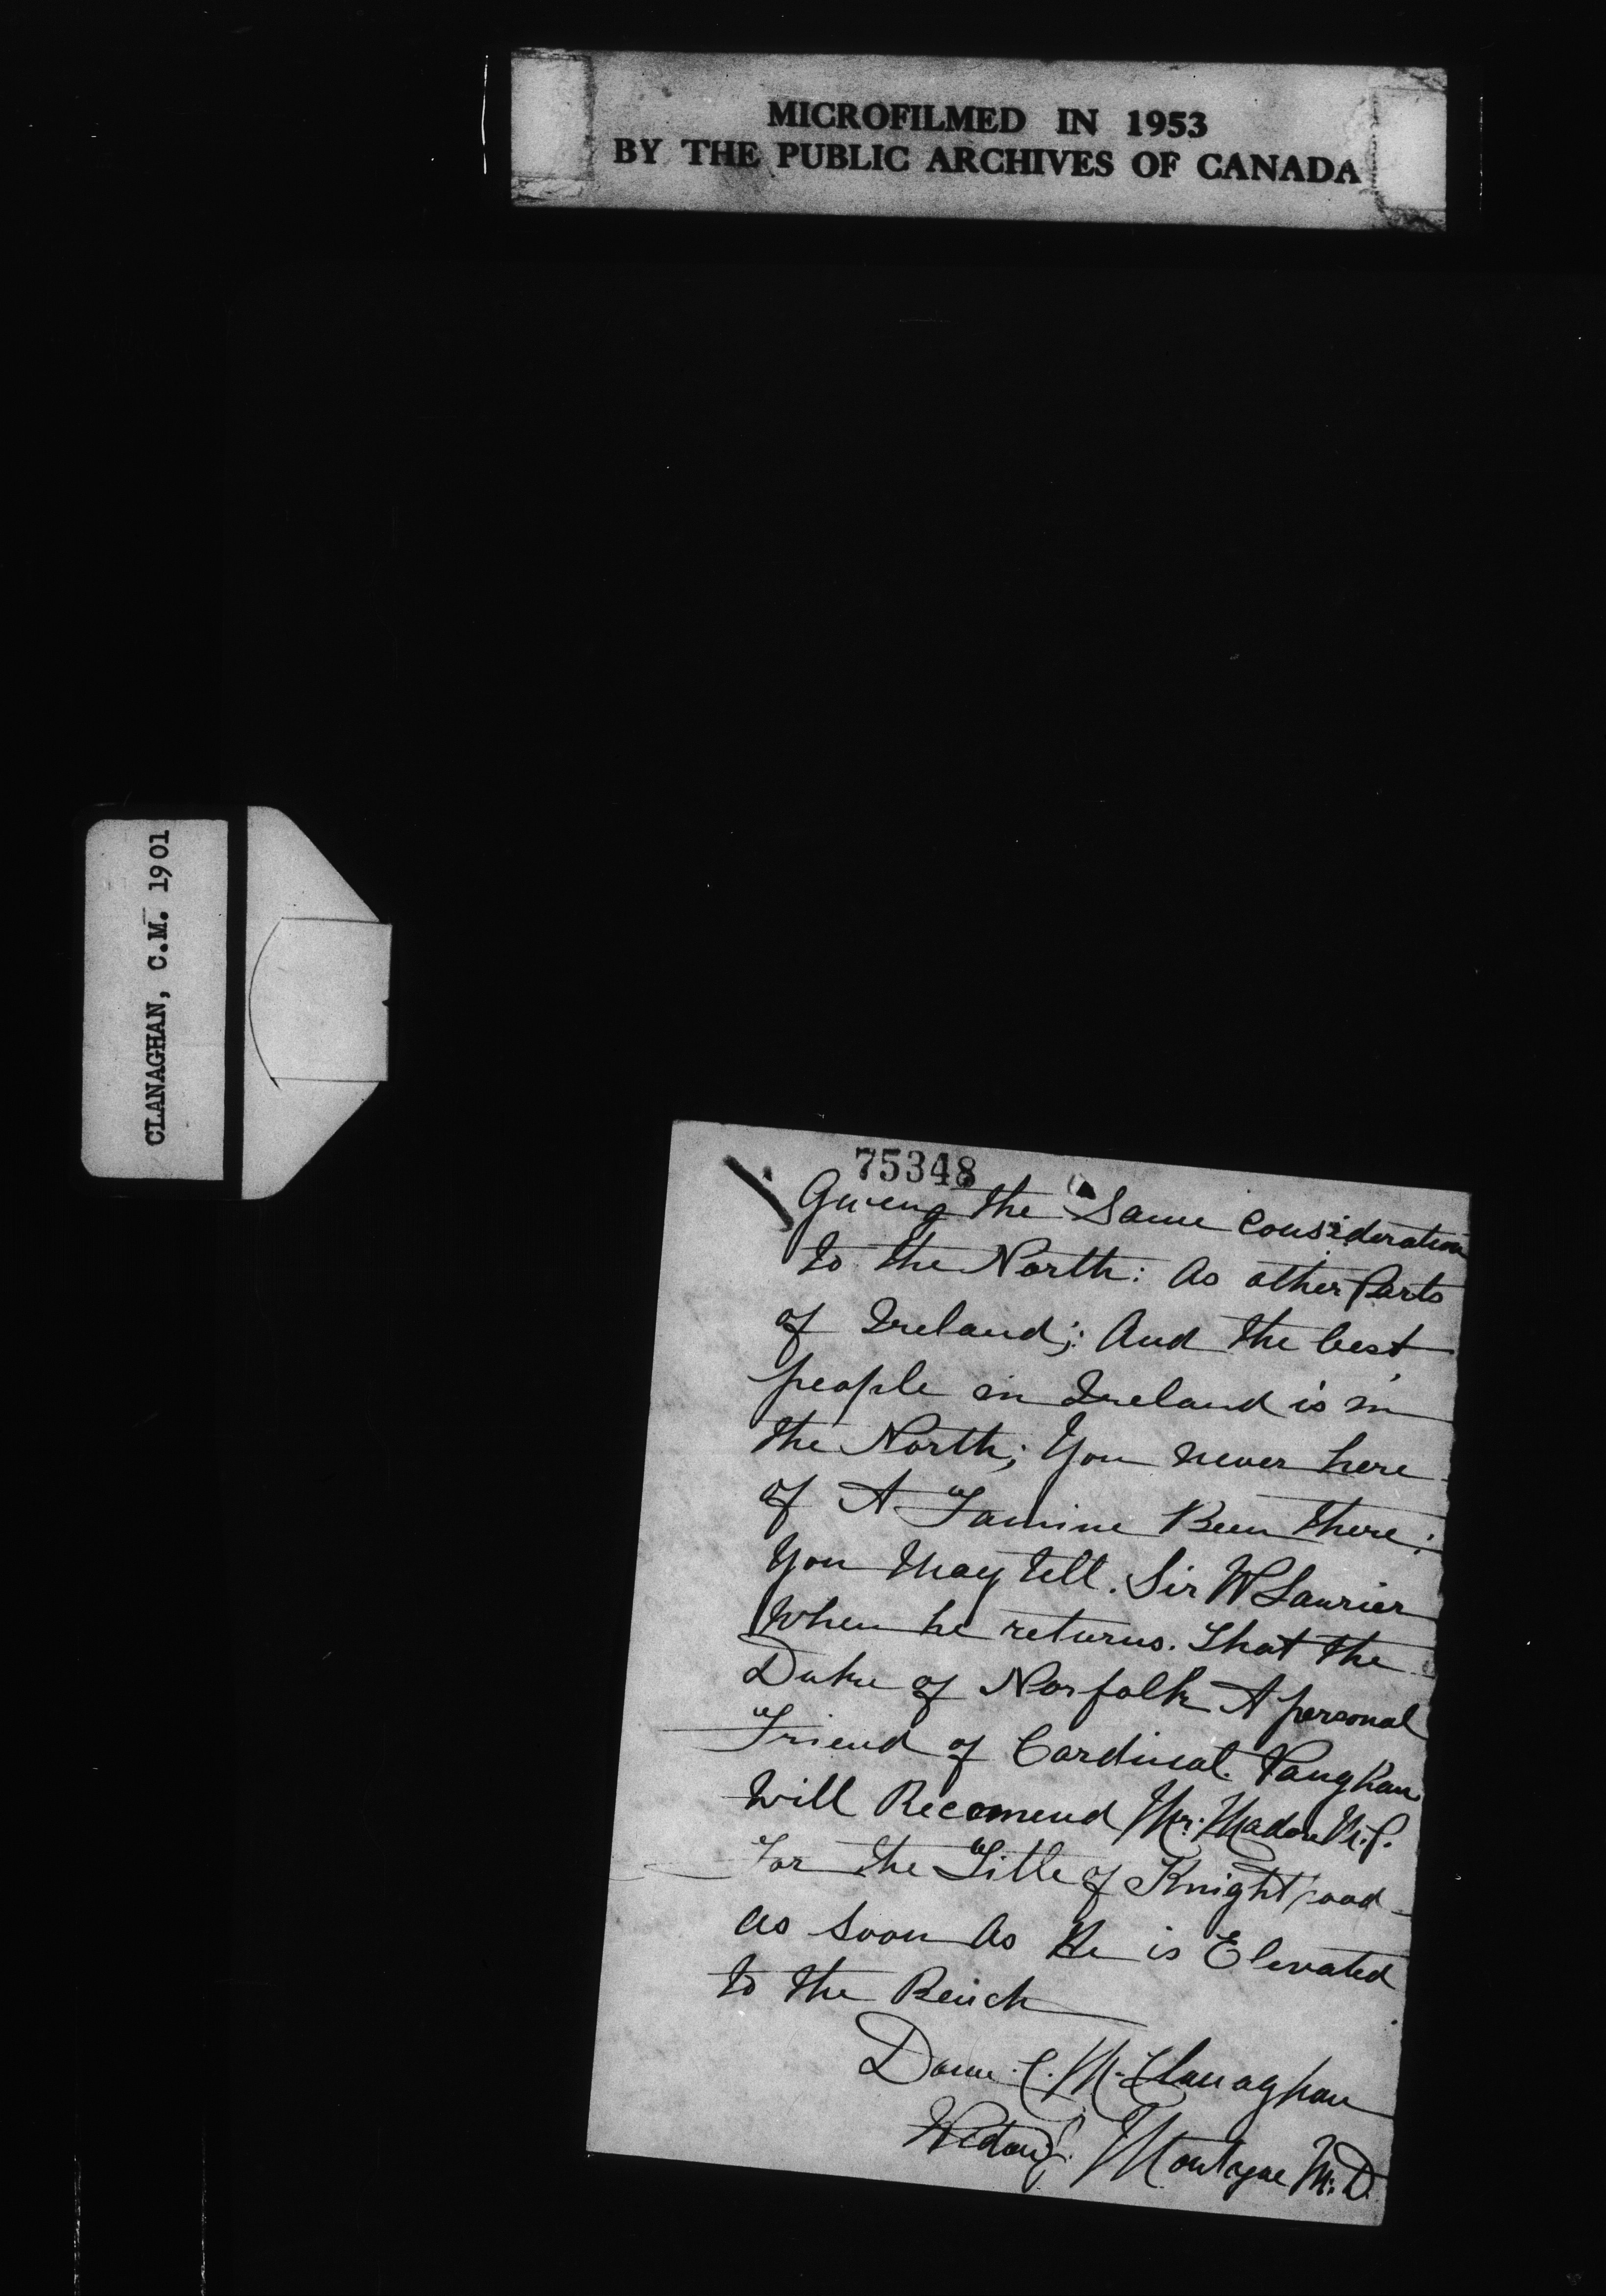 MICROFILMED IN 1953
BY THE PUBLIC ARCHIVES OF CANADA
CLANAGHAN, C.M. 1901
75348
Giveng the Same Consideration
to the North: As other Parts
of Ireland; And the best
people in Ireland is in
the North; You never here
of A Famine Been there:
You May tell. Sir W Laurier
When he returns. That the
Duke of Norfolk A personal
Friend of Cardinal. Vaughan
Will Recomend Mr. M.P.
For the Title of Knighthood
as soon As He is Elevated
to the Bench
C. M. Clanaghan
Montague M.D.